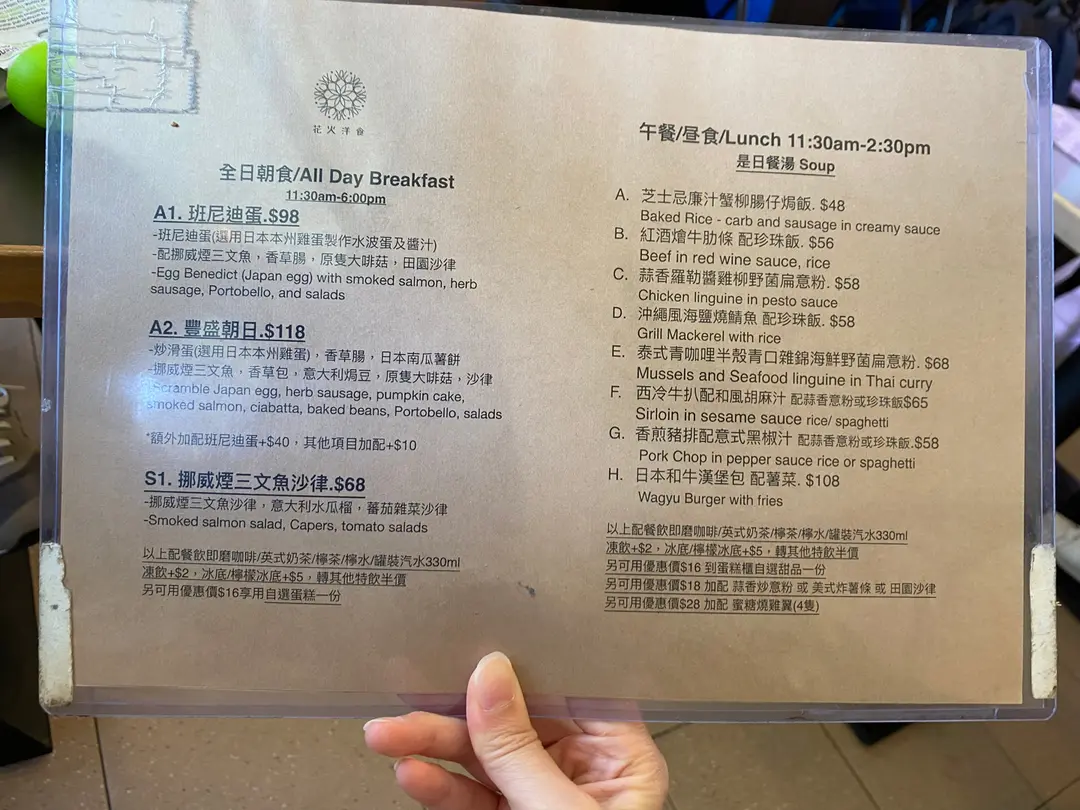 花火洋食
全日朝食/All Day Breakfast
11:30am-6:00pm
A1. 班尼迪蛋.$98
-班尼迪蛋(選用日本本州雞蛋製作水波蛋及醬汁)
-配挪威煙三文魚，香草腸，原隻大啡菇，田園沙律
-Egg Benedict (Japan egg) with smoked salmon, herb
sausage, Portobello, and salads
A2. 豐盛朝日.$118
-炒滑蛋(選用日本本州雞蛋)，香草腸，日本南瓜薯餅
-挪威煙三文魚，香草包，意大利焗豆，原隻大啡菇，沙律
-Scramble Japan egg, herb sausage, pumpkin cake,
smoked salmon, ciabatta, baked beans, Portobello, salads
*額外加配班尼迪蛋+$40，其他項目加配+$10
S1. 挪威煙三文魚沙律.$68
-挪威煙三文魚沙律，意大利水瓜榴，蕃茄雜菜沙律
-Smoked salmon salad, Capers, tomato salads
以上配餐飲即磨咖啡/英式奶茶/檸茶/檸水/罐裝汽水330ml
凍飲+$2，冰底/檸檬冰底+$5，轉其他特飲半價
另可用優惠價$16享用自選蛋糕一份
午餐/昼食/Lunch 11:30am-2:30pm
是日餐湯 Soup
A. 芝士忌廉汁蟹柳腸仔焗飯. $48
Baked Rice - carb and sausage in creamy sauce
B. 紅酒燴牛肋條 配珍珠飯. $56
Beef in red wine sauce, rice
C. 蒜香羅勒醬雞柳野菌扁意粉. $58
Chicken linguine in pesto sauce
D. 沖繩風海鹽燒鯖魚 配珍珠飯. $58
Grill Mackerel with rice
E. 泰式青咖哩半殼青口雜錦海鮮野菌扁意粉. $68
Mussels and Seafood linguine in Thai curry
F. 西冷牛扒配和風胡麻汁 配蒜香意粉或珍珠飯$65
Sirloin in sesame sauce rice/ spaghetti
G. 香煎豬排配意式黑椒汁 配蒜香意粉或珍珠飯.$58
Pork Chop in pepper sauce rice or spaghetti
H. 日本和牛漢堡包 配薯菜. $108
Wagyu Burger with fries
以上配餐飲即磨咖啡/英式奶茶/檸茶/檸水/罐裝汽水330ml
凍飲+$2，冰底/檸檬冰底+$5，轉其他特飲半價
另可用優惠價$16 到蛋糕櫃自選甜品一份
另可用優惠價$18 加配 蒜香炒意粉 或 美式炸薯條 或 田園沙律
另可用優惠價$28 加配 蜜糖燒雞翼(4隻)